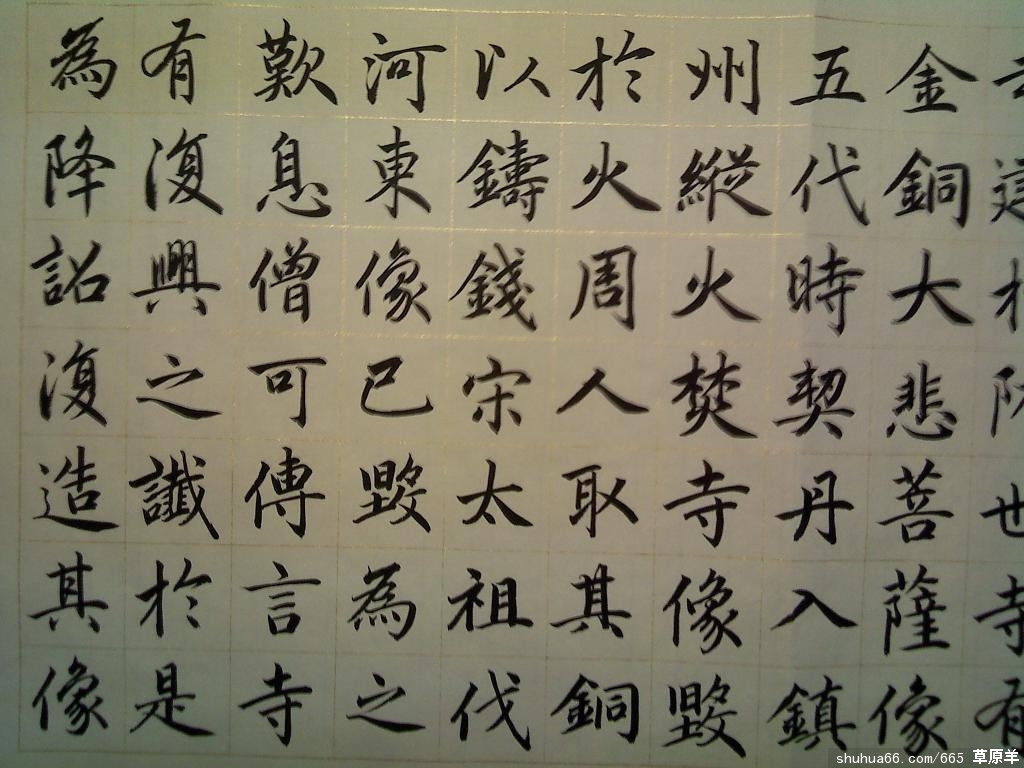 寺有
金銅大悲菩薩像
五代時契丹入鎮
州縱火焚寺像毀
於火周人取其銅
以鑄錢宋太祖伐
河東像已毀為之
歎息僧可傳言寺
有復興之讖於是
為降詔復造其像
shuhua66.com/665 草原羊